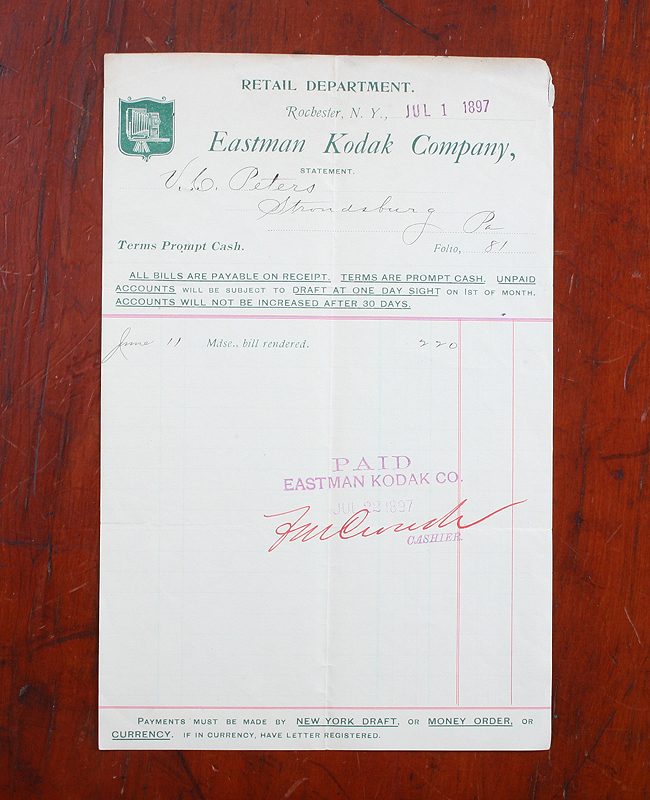 RETAIL DEPARTMENT.
Rochester, N. Y., JUL 1 1897
Eastman Kodak Company,
STATEMENT.
V. C. Peters
Stroudsburg Pa
Terms Prompt Cash. Folio, 81
ALL BILLS ARE PAYABLE ON RECEIPT. TERMS ARE PROMPT CASH. UNPAID
ACCOUNTS WILL BE SUBJECT TO DRAFT AT ONE DAY SIGHT ON 1ST OF MONTH.
ACCOUNTS WILL NOT BE INCREASED AFTER 30 DAYS.
June 11 Mdse., bill rendered. 2 20
PAID
EASTMAN KODAK CO.
JUL 22 1897
CASHIER.
PAYMENTS MUST BE MADE BY NEW YORK DRAFT, OR MONEY ORDER, OR
CURRENCY. IF IN CURRENCY, HAVE LETTER REGISTERED.